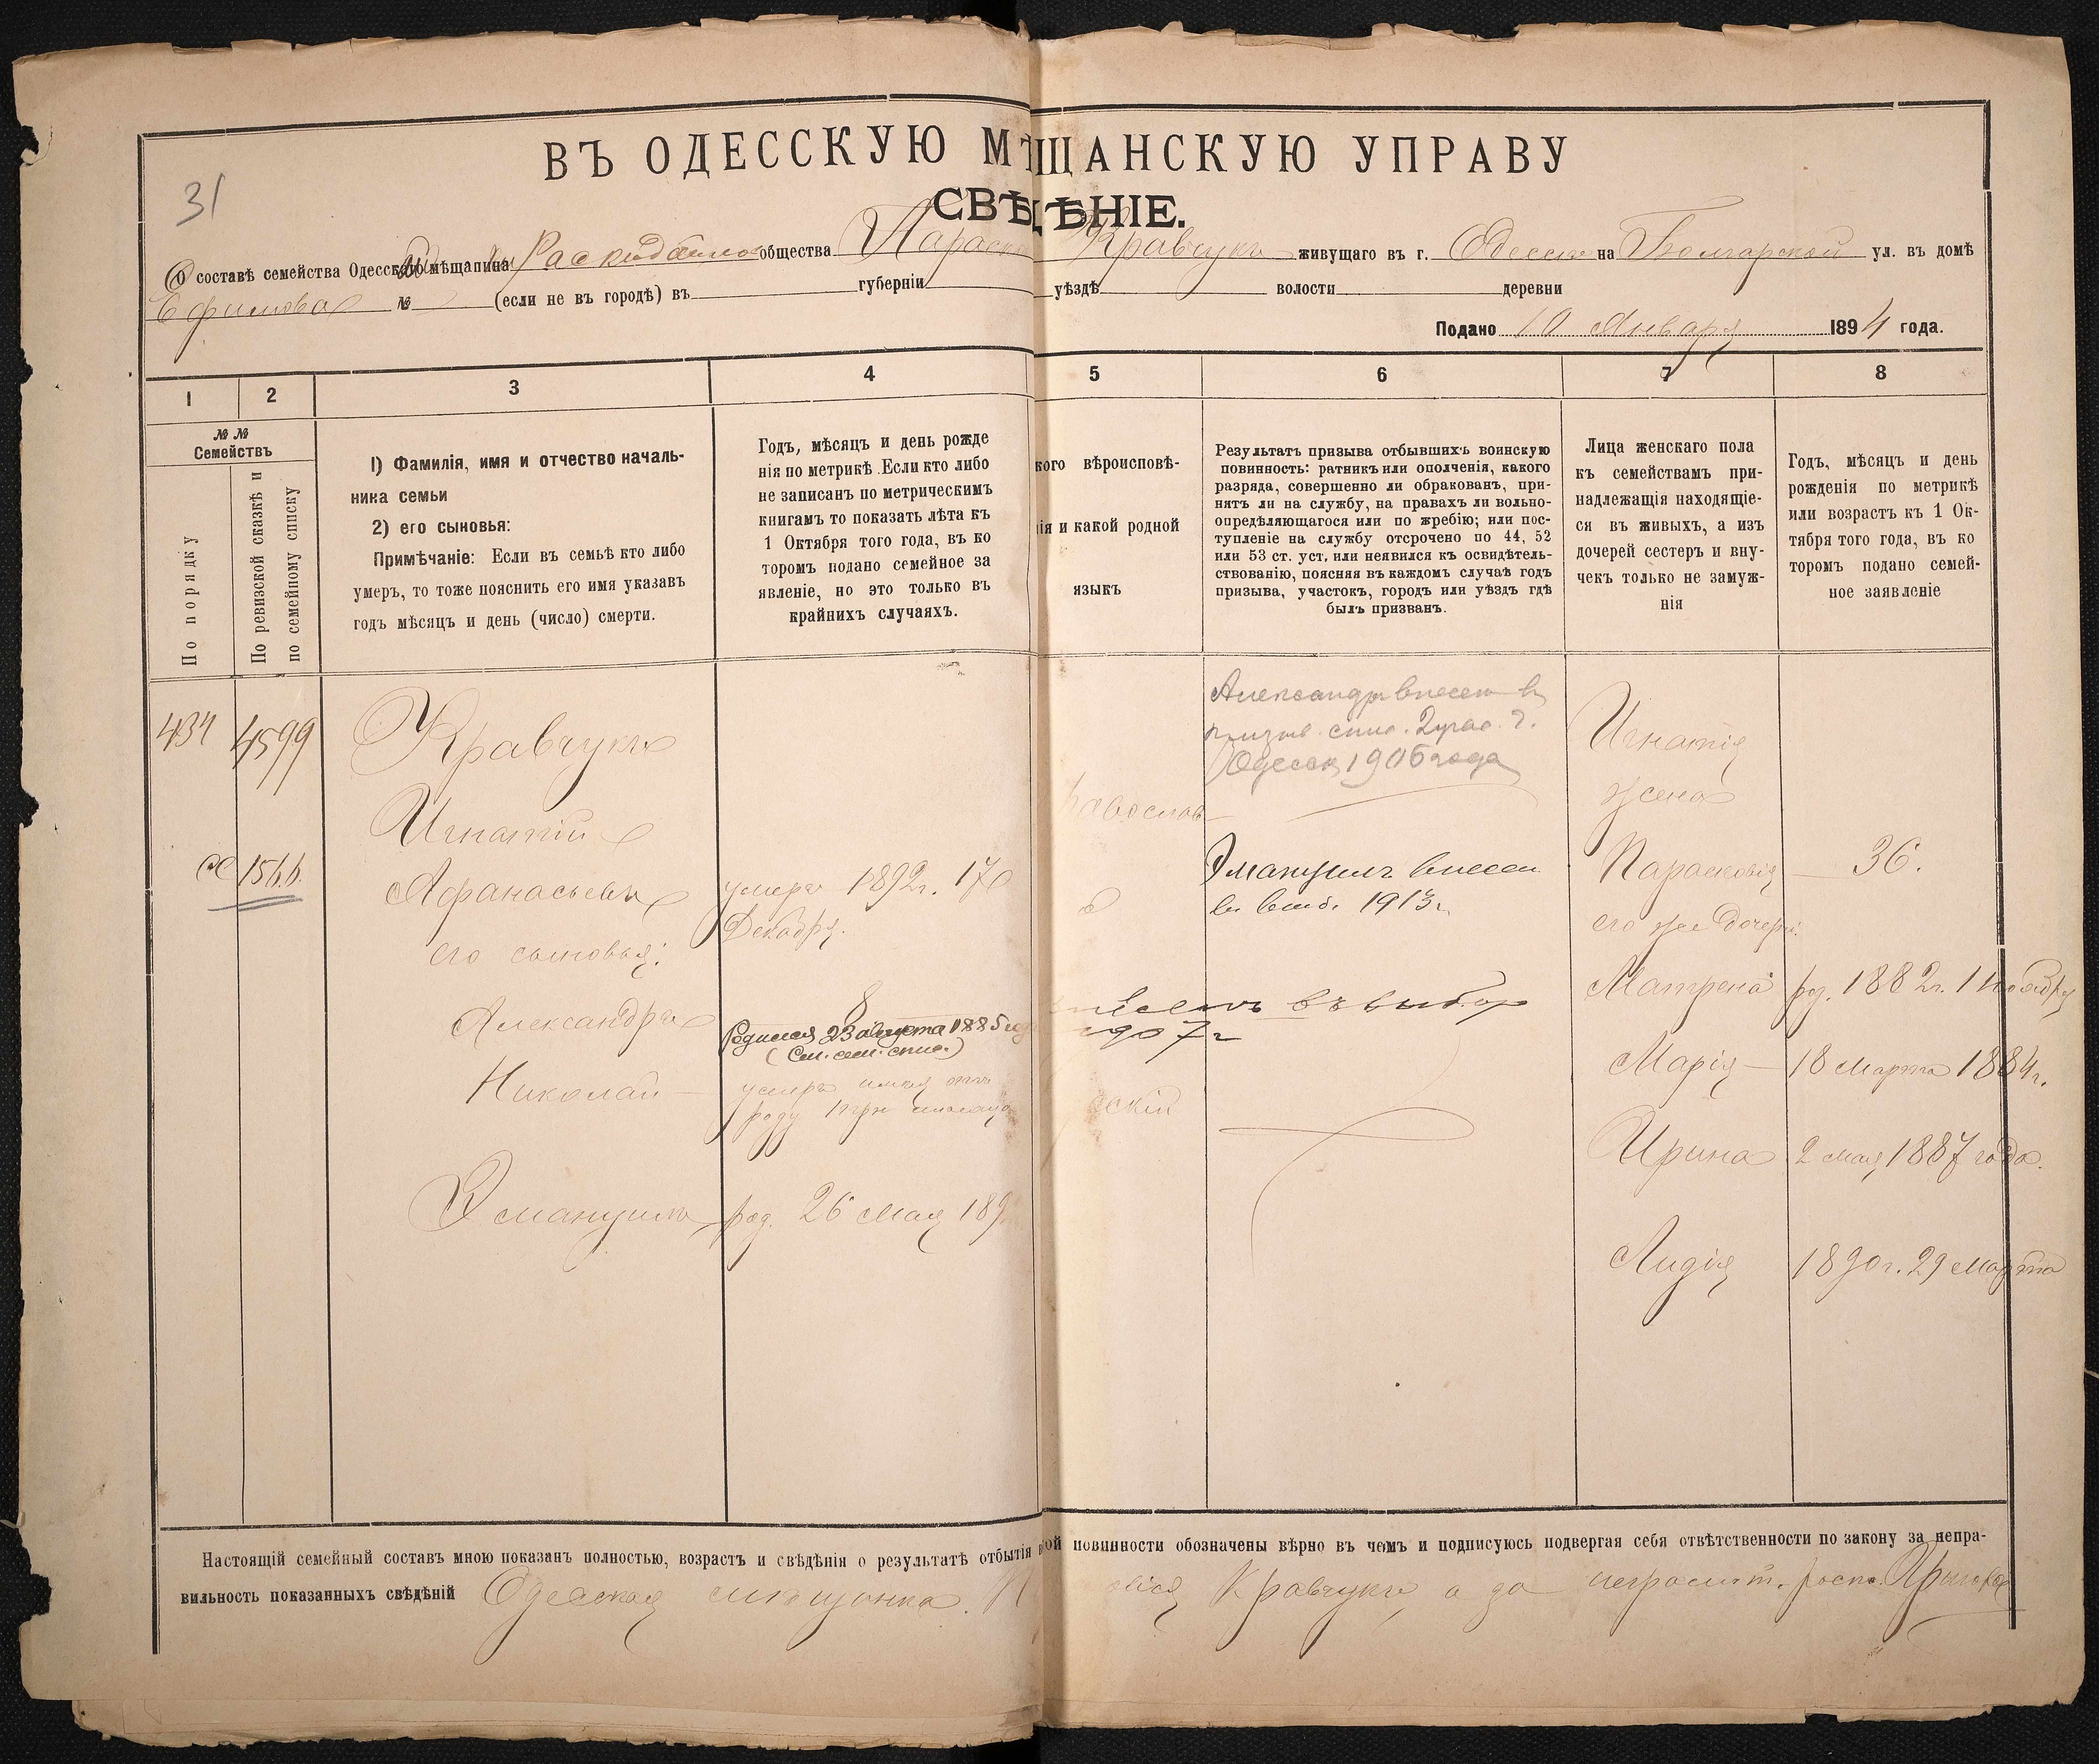 31
ВЪ ОДЕССКУЮ МѢЩАНСКУЮ УПРАВУ
СВѢДѢНІЕ.
О составѣ семейства Одесской мѣщанина общества Параск Кравчукъ живущаго въ г. Одессѣ на Болгарской ул. въ домѣ
Ефимова № (если не въ городѣ) въ губерніи уѣздѣ волости деревни
Подано 10 Января 1894 года.
1 2 3 4 5 6 7 8
№ №
Семействъ
По порядку
По ревизской сказкѣ и
по семейному списку
1) Фамилія, имя и отчество началь-
ника семьи
2) его сыновья:
Примѣчаніе: Если въ семьѣ кто либо
умеръ, то тоже пояснить его имя указавъ
годъ мѣсяцъ и день (число) смерти.
Годъ, мѣсяцъ и день рожде
нія по метрикѣ. Если кто либо
не записанъ по метрическимъ
книгамъ то показать лѣта къ
1 Октября того года, въ ко
торомъ подано семейное за
явленіе, но это только въ
крайнихъ случаяхъ.
кого вѣроисповѣ-
нія и какой родной
языкъ
Результатъ призыва отбывшихъ воинскую
повинность: ратникъ или ополченія, какого
разряда, совершенно ли обракованъ, при-
нятъ ли на службу, на правахъ ли вольно-
опредѣляющагося или по жребію; или пос-
тупленіе на службу отсрочено по 44, 52
или 53 ст. уст, или неявился къ освидѣтель-
ствованію, поясняя въ каждомъ случаѣ годъ
призыва, участокъ, городъ или уѣздъ гдѣ
былъ призванъ.
Лица женскаго пола
къ семействамъ при-
надлежащія находящіе-
ся въ живыхъ, а изъ
дочерей сестеръ и вну-
чекъ только не замуж-
нія
Годъ, мѣсяцъ и день
рожденія по метрикѣ
или возрастъ къ 1 Ок-
тября того года, въ ко
торомъ подано семей-
ное заявленіе
434 4599
Кравчукъ
Игнатій
156.
Афанасьевъ умеръ 1892г. 17
Декабря.
его сыновья:
Александръ 8
Родился 23 августа 1885
(См. сем. спис.)
Николай умеръ
Эмануилъ род. 26 Мая 189
равослав
скій
Александръ внесенъ въ
призыв. спис. 2 учас. г.
Одессы 1906 года
Эмануилъ внесен
1913г.
907г
Игнатія
жена
Парасковія 36.
его же дочери:
Матрена р. 1882г. 1 Ноября
Марія 18 Марта 1884г.
Ирина 2 мая 1887 года.
Лидія 1890г. 29 Марта
Настоящій семейный составъ мною показанъ полностью, возрастъ и свѣдѣнія о результатѣ отбытія ой повинности обозначены вѣрно въ чемъ и подписуюсь подвергая себя отвѣтственности по закону за непра-
вильность показанныхъ свѣдѣній Одесская мѣщанка. П овія Кравчукъ, а за неграмот. роспс.